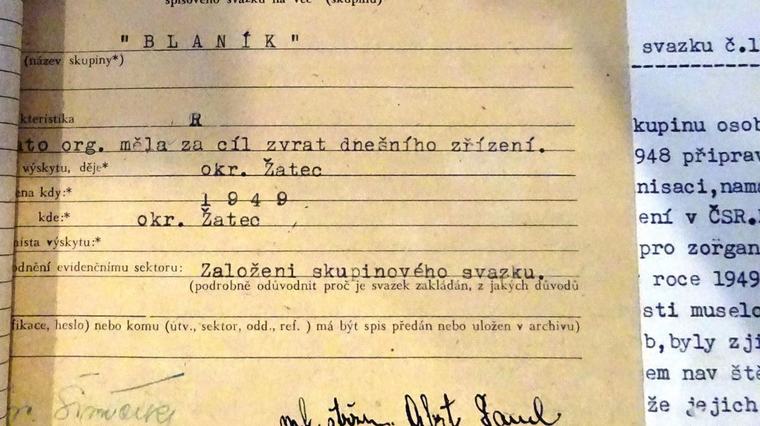 spisového svazku na věc (skupinu)
"BLANÍK"
(název skupiny*)
kteristika R
ato org. měla za cíl zvrat dnešního zřízení.
výskytu, děje* okr. Žatec
ena kdy:* 1949
kde:* okr. Žatec
místa výskytu:*
odnění evidenčnímu sektoru: Založeni skupinového svazku.
(podrobně odůvodnit proč je svazek zakládán, z jakých důvodů
fikace, heslo) nebo komu (útv., sektor, odd., ref. ) má být spis předán nebo uložen v archivu)
svazku č.1
kupinu osob
948 připrav
nisaci,nam
ení v ČSR.
pro zorgan
roce 1949
sti muselo
b,byly zji
em nav ště
že jejich